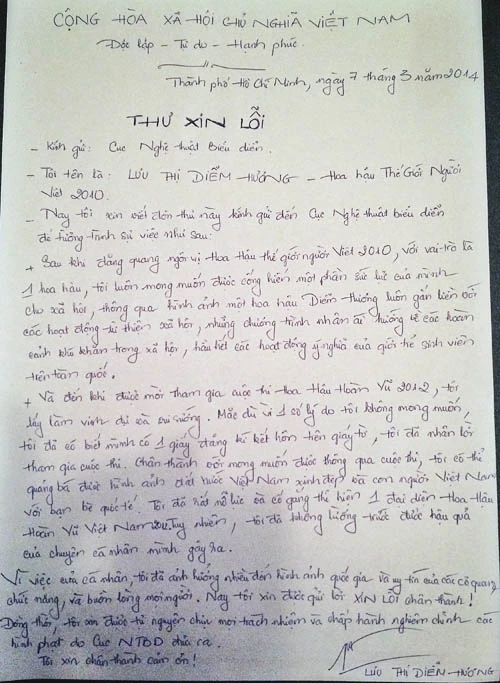 CỘNG HÒA XÃ HỘI CHỦ NGHĨA VIỆT NAM
Độc lập - Tự do - Hạnh phúc.
Thành phố Hồ Chí Minh, ngày 7 tháng 3 năm 2014
THƯ XIN LỖI
- Kính gửi: Cục Nghệ thuật Biểu diễn.
- Tôi tên là: LƯU THỊ DIỄM HƯƠNG - Hoa hậu Thế Giới Người
Việt 2010.
- Nay tôi xin viết đến thư này kính gửi đến Cục Nghệ thuật biểu diễn
để tường trình sự việc như sau:
+ Sau khi đăng quang ngôi vị Hoa Hậu thế giới người Việt 2010, với vai trò là
1 hoa hậu, tôi luôn mong muốn được cống hiến một phần sức lực của mình
cho xã hội, thông qua hình ảnh một hoa hậu Diễm Hương luôn gắn liền với
các hoạt động từ thiện xã hội, những chương trình nhân ái hướng về các hoàn
cảnh khó khăn trong xã hội, hầu hết các hoạt động ý nghĩa của giới trẻ sinh viên
trên toàn quốc.
+ Và đến khi được mời tham gia cuộc thi Hoa Hậu Hoàn Vũ 2012, tôi
lấy làm vinh dự và vui sướng. Mặc dù vì 1 số lý do tôi không mong muốn,
tôi đã có biết mình có 1 giấy đăng kí kết hôn trên giấy tờ, tôi đã nhận lời
tham gia cuộc thi. Chân thành với mong muốn được thông qua cuộc thi, tôi có thể
quảng bá được hình ảnh đất nước Việt Nam xinh đẹp và con người Việt Nam
với bạn bè quốc tế. Tôi đã rất nỗ lực và cố gắng thể hiện 1 đại diện Hoa Hậu
Hoàn Vũ Việt Nam 2012. Tuy nhiên, tôi đã không lường trước được hậu quả
của chuyện cá nhân mình gây ra.
Vì việc của cá nhân, tôi đã ảnh hưởng nhiều đến hình ảnh quốc gia và uy tín của các cơ quan
chức năng, và buồn lòng mọi người. Nay tôi xin được gửi lời XIN LỖI chân thành!
Đồng thời, tôi xin được tự nguyện chịu mọi trách nhiệm và chấp hành nghiêm chỉnh các
hình phạt do Cục NTBD đưa ra.
Tôi xin chân thành cảm ơn!
LƯU THỊ DIỄM HƯƠNG